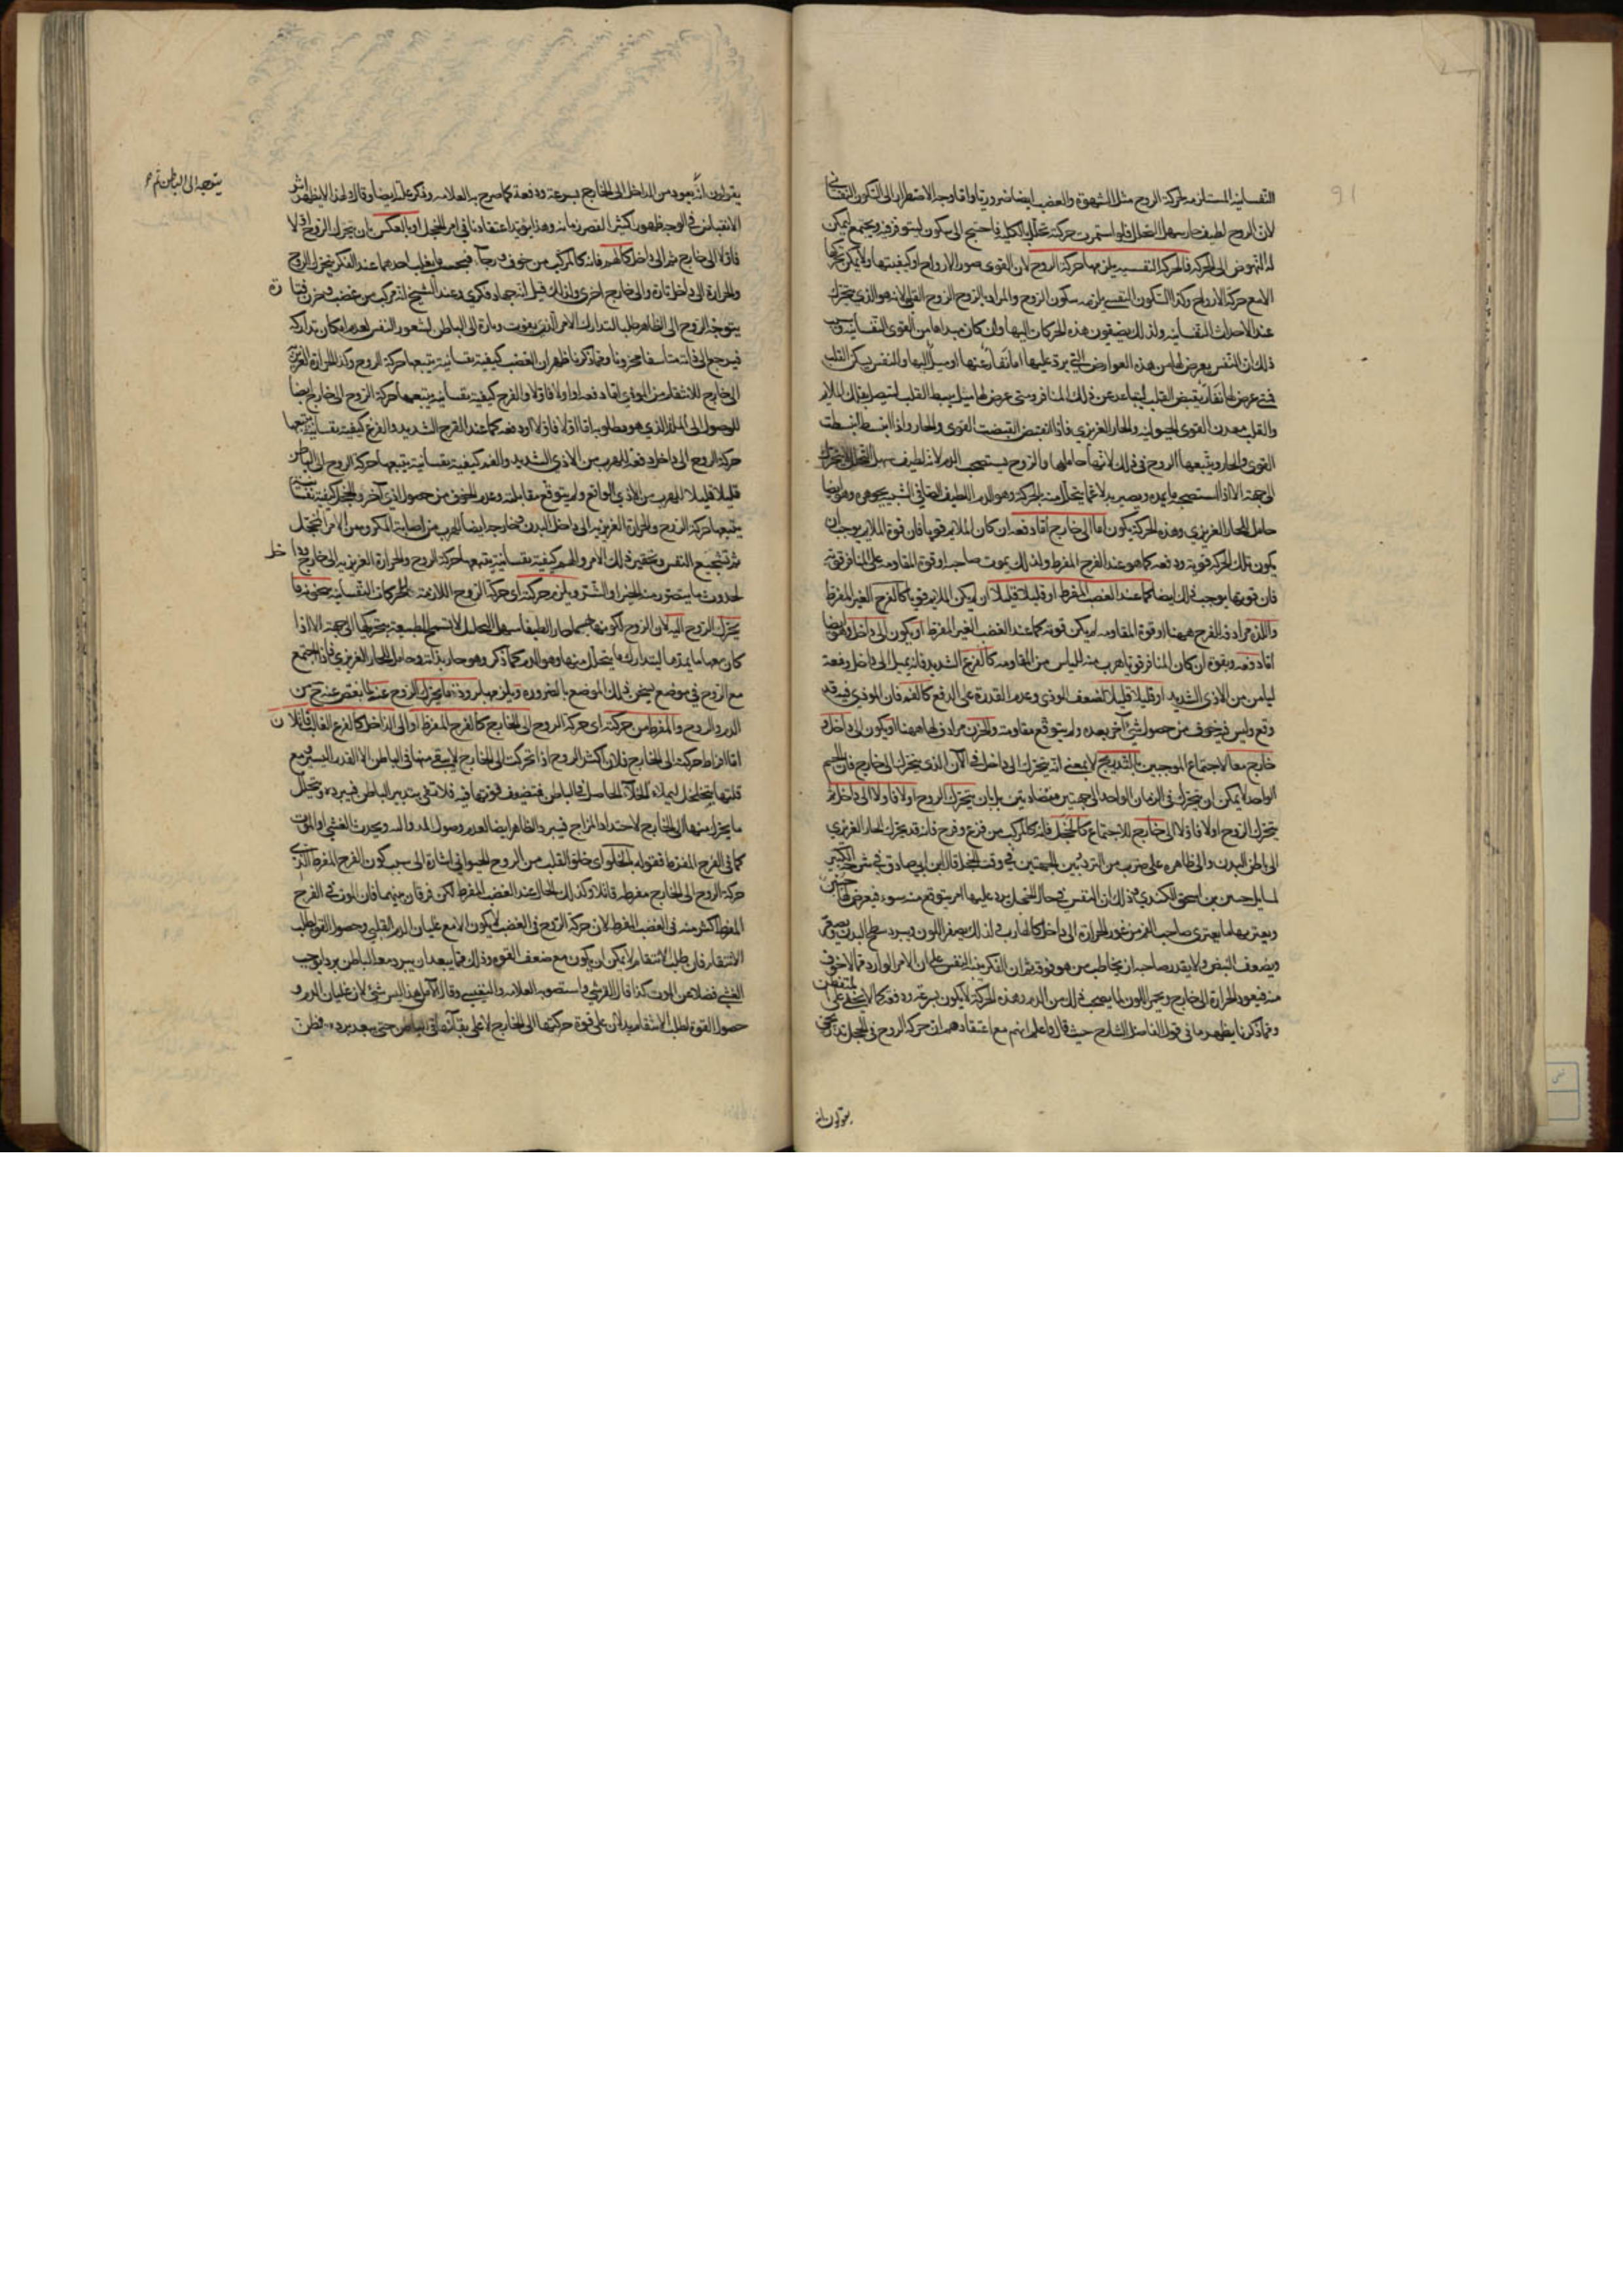 النفسانية المستلزمة لحركة الروح مثل الشهوة والغضب ايضا ضرورية واما وجه الاضطرار الى السكون النفساني
لان الروح لطيف حار سهل التحلل فلو استمرت حركته تحلل بالكلية فاحتيج الى سكون ليتوفر فيه ويجتمع ليمكن
له النهوض الى الحركة فالحركة النفسية يلزمها حركة الروح لان القوى صور الارواح وكيفيتها ولا يمكن تحركها
الا مع حركة الارواح وكذا السكون النفسي يلزمه سكون الروح والمراد بالروح الروح القلبي لانه هو الذي يتحرك
عند الاحداث النفسانية ولذلك يضيفون هذه الحركات اليها وان كان مبداها من القوى النفسانية وسبب
ذلك ان النفس يعرض لها من هذه العوارض التي يرد عليها اما نفار عنها او ميل اليها والنفس يسكن القلب
فمتى عرض لها نفار يقبض القلب ليتباعد عن ذلك المنافر ومتى عرض لها ميل يبسط القلب لتتصل بذلك الملايم
والقلب معدن القوى الحيوانية والحار الغريزي فاذا انقبض انقبضت القوى والحار واذا انبسط انبسطت
القوى والحار ويتبعها الروح في ذلك لانها حاملها والروح يستصحب الدم لانه لطيف سهل التحلل لا يتحرك
الى جهة الا اذا استصحب ما يمده ويصير بدلا عما يتحلل منه بالحركة وهو الدم اللطيف الصافي الشبيه بجوهره وهو ايضا
حامل للحار الغريزي وهذه الحركة يكون اما الى خارج اما دفعة ان كان الملايم قويا فان قوة الملايم يوجب ان
يكون تلك الحركة قوية ودفعة كما هو عند الفرح المفرط ولذلك يموت صاحبه او قوة المقاومة على المنافر قوية
فان قوتها يوجب ذلك ايضا كما عند الغضب المفرط او قليلا قليلا ان لم يكن الملايم قويا كالفرح الغير المفرط
واللذة مرادفة للفرح ههنا او قوة المقاومة لم يكن قوية كما عند الغضب الغير المفرط او يكون الى داخل وهو ايضا
اما دفعة وبقوة ان كان المنافر قويا هرب منه للياس من المقاومة كالفزع الشديد فانه يميل الى داخل دفعة
لياس من الاذى الشديد او قليلا قليلا لضعف الموذي وعدم القدرة على الدفع كالغم فان الموذي فيه قد
وقع وليس فيه خوف من حصول شيء آخر بعده ولم يتوقع مقاومته والحزن مرادف لها ههنا او يكون الى داخل و
خارج معا لاجتماع الموجبين بالتدريج لا بمعنى انه يتحرك الى داخل في الآن الذي يتحرك الى خارج فان الجسم
الواحد لا يمكن ان يتحرك في الزمان الواحد الى جهتين متضادتين بل بان يتحرك الروح اولا فاولا الى داخل ثم
يتحرك الروح اولا فاولا الى خارج للاجتماع كالخجل فانه كالمركب من فزع وفرح فانه قد يتحرك الحار الغريزي
الى باطن البدن والى ظاهره على ضرب من الترديد بين الجهتين في وقت الخجل قال ابن ابي صادق في شرحه الكبير
لمسايل حنين بن اسحق الكندي وذلك ان النفس في حال الخجل يرد عليها امر يتوقع منه سوء فيعرض لها
ويعتريها ما يعتري صاحب الغم من غور الحرارة الى داخل كالهارب ولذلك يصفر اللون ويبرد سطح البدن ويصغر
ويضعف النبض ولا يقدر صاحبه ان يخاطب من هو فوقه ثم ان الفكر ينبه النفس على ان الامر الوارد مما لا خوف
منه فيعود الحرارة الى خارج ويحمر اللون لما يصحب ذلك من الدم وهذه الحركة لا يكون بسرعة ودفعة كما لا يخفى على المتفطن
ومما ذكرنا يظهر ما في قول الفاضل الشارح حيث قال واعلم انهم مع اعتقادهم ان حركة الروح في الخجل تدريجي
يقولون انه
يقولون انه يعود من الداخل الى الخارج بسرعة ودفعة كما صرح به العلامة وذكر علته ايضا وقال ولهذا لا يظهر اثر
الانقباض في الوجه ظهورا كثيرا لقصر زمانه وهذا يؤيد اعتقادنا في امر الخجل او بالعكس بان يتحرك الروح اولا
فاولا الى خارج ثم الى داخل كالهم فانه كالمركب من خوف ورجآء فبحسب ما يغلب احدهما عند الفكر يتحرك الروح
والحرارة الى داخل تارة والى خارج اخرى ولذلك قيل انه جهاد فكري وعند الشيخ انه مركب من غضب وحزن فتارة
يتوجه الروح الى الظاهر طلبا لتدارك الامر الذي يفوت وتارة الى الباطن لشعور النفس لعدم امكان تداركه
يتوجه الى الباطن ثم
فيرجع الى ذاته متاسفا محزونا ومما ذكرنا ظهر ان الغضب كيفية نفسانية يتبعها حركة الروح وكذا الحرارة الغريزية
الى خارج للانتقام من الموذي اما دفعة او اولا فاولا والفرح كيفية نفسانية يتبعها حركة الروح الى خارج ايضا
للوصول الى الملذ الذي هو مطلوبه اما اولا فاولا او دفعة كما عند الفرح الشديد والفزع كيفية نفسانية يتبعها
حركة الروح الى داخل دفعة للهرب من الاذى الشديد والغم كيفية نفسانية يتبعها حركة الروح الى الباطن
قليلا قليلا للهرب من الاذى الواقع ولم يتوقع مقابلته وعدم الخوف من حصول اذى آخر والخجل كيفية نفسانية
يتبعها حركة الروح والحرارة الغريزية الى داخل البدن وخارجه ايضا للهرب من اصابة المكروه من الامر المخجل
ثم تشجيع النفس وتحقير ذلك الامر والهم كيفية نفسانية يتبعها حركة الروح والحرارة الغريزية الى خارج وداخل
لحدوث ما يتصور منه الخير او الشر ويلزم حركته اى حركة الروح اللازمة للحركات النفسانية سخونة ما
يتحرك الروح اليه لان الروح لكونها جسما حارا لطيفا سهل التحلل لا تسمح الطبيعة بتحريكها الى جهة الا اذا
كان معها ما يمدها ليتدارك ما يتحلل منها وهو الدم كما ذكر وهو حار بذاته وحامل للحار الغريزي فاذا اجتمع
مع الروح في موضع يسخن ذلك الموضع بالضرورة ويلزمها برودة ما يتحرك الروح عنه لما نقص عنه ح من
الدم والروح والمفرط من حركته اى حركة الروح الى الخارج كالفرح المفرط او الى الداخل كالفزع الغالب قاتلان
اما افراط حركته الى الخارج فلان اكثر الروح اذا تحركت الى الخارج لا يبقى منها في الباطن الا القدر اليسير ومع
قلتها يتخلخل ليملاء الخلآء الحاصل في الباطن فتضعف قوتها فيه فلا تفي بتدبير الباطن فيبرد وتحلل
ما يتحرك منها الى الخارج لاحتداد المزاج فيبرد الظاهر ايضا لعدم وصول المدد اليه ويحدث الغشي او الموت
كما في الفرح المفرط فقوله لخلو اى خلو القلب من الروح الحيواني اشارة الى سبب كون الفرح المفرط الذي
حركة الروح الى الخارج مفرطة قاتلا وكذلك الحال عند الغضب المفرط لكن فرقان بينهما فان الموت في الفرح
المفرط اكثر منه في الغضب المفرط لان حركة الروح في الغضب لا يكون الا مع غليان الدم القلبي وحصول القوة لطلب
الانتقام فان طلب الانتقام لا يمكن ان يكون مع ضعف القوة وذلك مما يبعد ان يبرد معه الباطن بردا يوجب
الغشي فضلا عن الموت كذا قال القرشي واستصوبه العلامة والنفيسي وقال الآملي هذا ليس بشيء لان غليان الدم و
حصول القوة لطلب الانتقام يدلان على قوة حركتها الى الخارج لا على بقآئها في الباطن حتى يبعد برده وظن